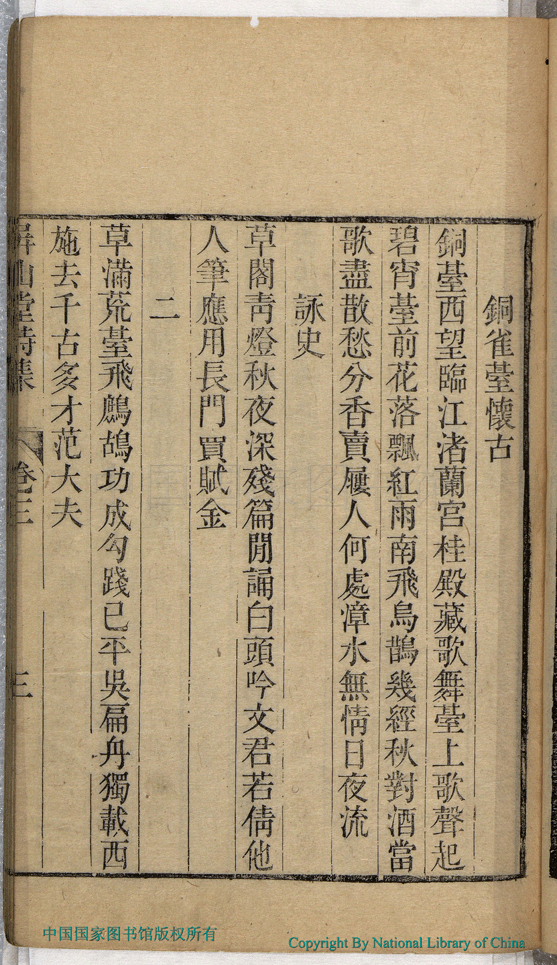 銅雀臺懷古
銅臺西望臨江渚蘭宮桂殿藏歌舞臺上歌聲起
碧宵臺前花落飄紅雨南飛烏鵲幾經秋對酒當
歌盡散愁分香賣屨人何處漳水無情日夜流
詠史
草閣青燈秋夜深殘篇閒誦白頭吟文君若倩他
人筆應用長門買賦金
二
草滿荒臺飛鷓鴣功成勾踐已平吳扁舟獨載西
施去千古多才范大夫
屏山堂詩集 卷三 三
中国国家图书馆版权所有
Copyright By National Library of China